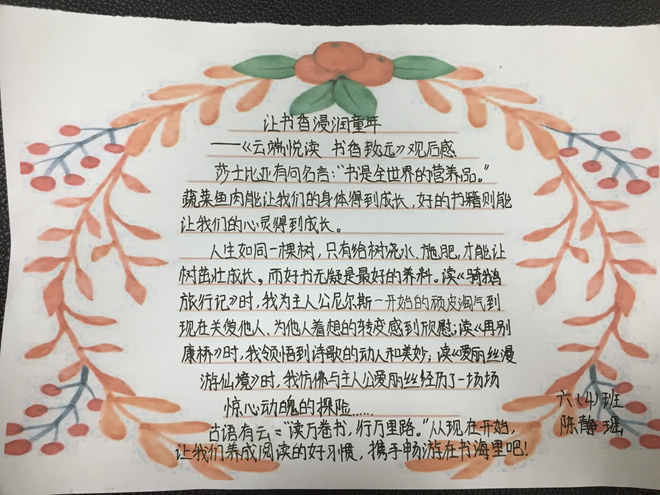 让书香浸润童年
——《云端悦读 书香致远》观后感
莎士比亚有问名言：“书是全世界的营养品。”
蔬菜鱼肉能让我们的身体得到成长，好的书籍则能
让我们的心灵得到成长。
人生如同一棵树，只有给树浇水、施肥，才能让
树茁壮成长。而好书无疑是最好的养料。读《骑鹅
旅行记》时，我为主人公尼尔斯一开始的顽皮淘气到
现在关爱他人，为他人着想的转变感到欣慰；读《再别
康桥》时，我领悟到诗歌的动人和美妙；读《爱丽丝漫
游仙境》时，我仿佛与主人公爱丽丝经历了一场场
惊心动魄的探险……
古语有云：“读万卷书，行万里路。”从现在开始，
让我们养成阅读的好习惯，携手畅游在书海里吧！
六（4）班
陈静瑶